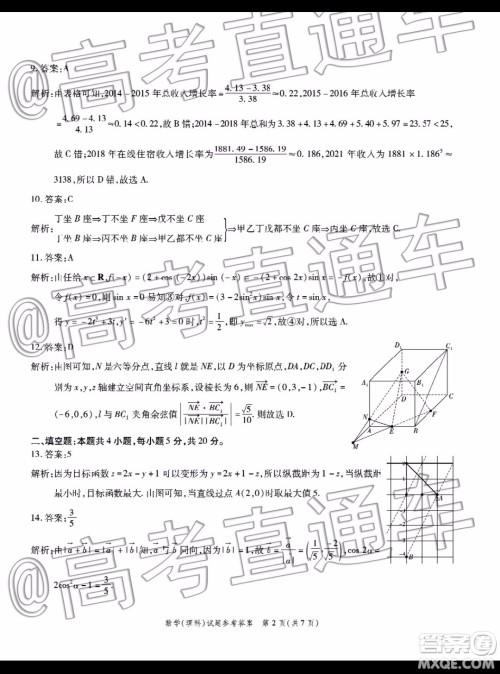 @高考直通车
9. 答案:A
解析:由表格可知,2014-2015 年总收入增长率=(4.13-3.38)/3.38≈0.22,2015-2016 年总收入增长率
=(4.69-4.13)/4.13≈0.14<0.22,故 B 错;2014-2018 年总和为 3.38+4.13+
故 C 错;2018 年在线住宿收入增长率为(1881.49-1586.19)/1586.19≈0.186,2021 年收入为 1881×1.186³≈
3138,所以 D 错,故选 A.
10. 答案:C
解析:丁坐 B 座⇒丁不坐 F 座⇒戊不坐 C 座
丁坐 B 座⇒丙不坐 B 座⇒甲不坐
}⇒甲乙丁戊都不坐 C 座⇒丙坐 C 座.故选 C.
11. 答案:A
解析:由任给 x∈R,f(-x)=(2+cos(-2x))sin(-x)=-(2+cos2x)sinx=-f(x).故①对,
令 f(x)=0,则 sinx=0 易知③对,f(x)=(3-2sin²x)sinx,令 t=sinx
得 y=-2t³+3t,y'=-6t²+3 时,t²=1/2,即 yₘₐₓ=√2,故④对,所以选 A.
12. 答案:D
解析:由图可知,N 是六等分点,直线 l 就是直线 NE,以 D 为坐标原点,DA、DC、DD₁ 分
别为 x,y,z 轴建立空间直角坐标系,设棱长为 6,则NE=(0,3,-1),BC₁=
(-6,0,6),l 与 BC₁ 夹角余弦值|NE·BC₁/|NE||BC₁||=√5/10.则故选 D.
D₁
C₁
A₁
G
D
N
A
E
B
F
M
二、填空题:本题共 4 小题,每小题 5 分,共 20 分。
13. 答案:5
解析:因为目标函数 z=2x-y+1 可以变形为 y=2x+1-z,所以纵截距为 1-z,所以纵截距
最小时,目标函数最大.由图可知,当直线过点 A(2,0)时取最大值 5.
14. 答案:3/5
解析:由|a+b|=|a|+|b|知,a与b同向,因为|b|=1,故b=a/|a|=
2cos²α-1=3/5
数学(理科)试题参考答案 第 2 页(共 7 页)
答案圈
MXQE.COM